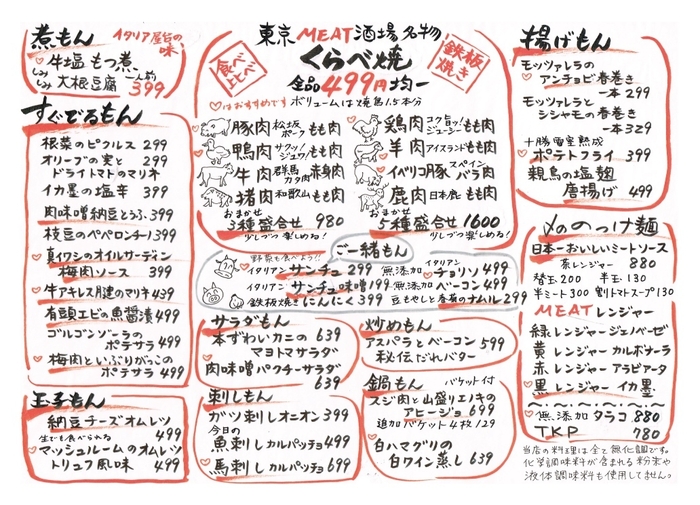 煮もん
イタリア屋台の味
♡牛塩もつ煮、
しみしみ大根豆腐 一人前 399
すぐでるもん
根菜のピクルス 299
オリーブの実と
ドライトマトのマリネ 299
イカ墨の塩辛 399
肉味噌納豆とうふ 399
枝豆のペペロンチーノ 399
♡真イワシのオイルサーディン
梅肉ソース 399
♡牛アキレス腱のマリネ 439
有頭エビの魚醤漬 499
ゴルゴンゾーラの
ポテサラ 499
♡梅肉といぶりがっこの
ポテサラ 499
玉子もん
納豆チーズオムレツ 499
生でも食べられる
♡マッシュルームのオムレツ
トリュフ風味 499
東京MEAT酒場名物
くらべ焼
食べ比べ
鉄板焼き
全品499円均一
♡はおすすめです ボリュームは焼鳥1.5本分
豚肉 松坂ポーク もも肉
♡鴨肉 サクッ!ジュワ! もも肉
牛肉 群馬カタ肉 赤身肉
猪肉 和歌山 もも肉
鶏肉 コク旨ッ!ジューシー もも肉
♡羊肉 アイスランド もも肉
♡イベリコ豚 スペイン バラ肉
鹿肉 日本鹿 もも肉
おまかせ
3種盛合せ 980
少しづつ楽しめる!
おまかせ
5種盛合せ 1600
少しづつ楽しめる!
ご一緒もん
野菜も食べよう!!
イタリアン サンチュ 299
イタリアン サンチュ味噌 199
♡鉄板焼き にんにく 399
無添加 イタリアン チョリソ 499
無添加 ベーコン 499
豆もやしと春菊のナムル 299
サラダもん
♡本ずわいカニの 639
マヨトマサラダ
肉味噌パクチーサラダ
639
炒めもん
アスパラとベーコン 599
秘伝だれバター
刺しもん
ガツ刺し オニオン 399
今日の
魚刺し カルパッチョ 499
♡馬刺し カルパッチョ 699
鍋もん バケット付
スジ肉と山盛りエノキの
アヒージョ 699
追加バケット4枚 129
♡白ハマグリの
白ワイン蒸し 639
揚げもん
モッツァレラの
♡アンチョビ春巻き
一本 299
モッツァレラと
シシャモの春巻き
一本 329
十勝雪室熟成
♡ポテトフライ 399
親鳥の塩麹
唐揚げ 499
〆ののっけ麺
日本一おいしいミートソース
茶レンジャー 880
替玉 200 半玉 130
半ミート 300 割トマトスープ 130
MEATレンジャー
緑レンジャー ジェノベーゼ
黄レンジャー カルボナーラ
赤レンジャー アラビアータ
♡黒レンジャー イカ墨
♡無添加 タラコ 880
TKP 780
当店の料理は全て無化調です。
化学調味料が含まれる粉末や
液体調味料も使用してません。